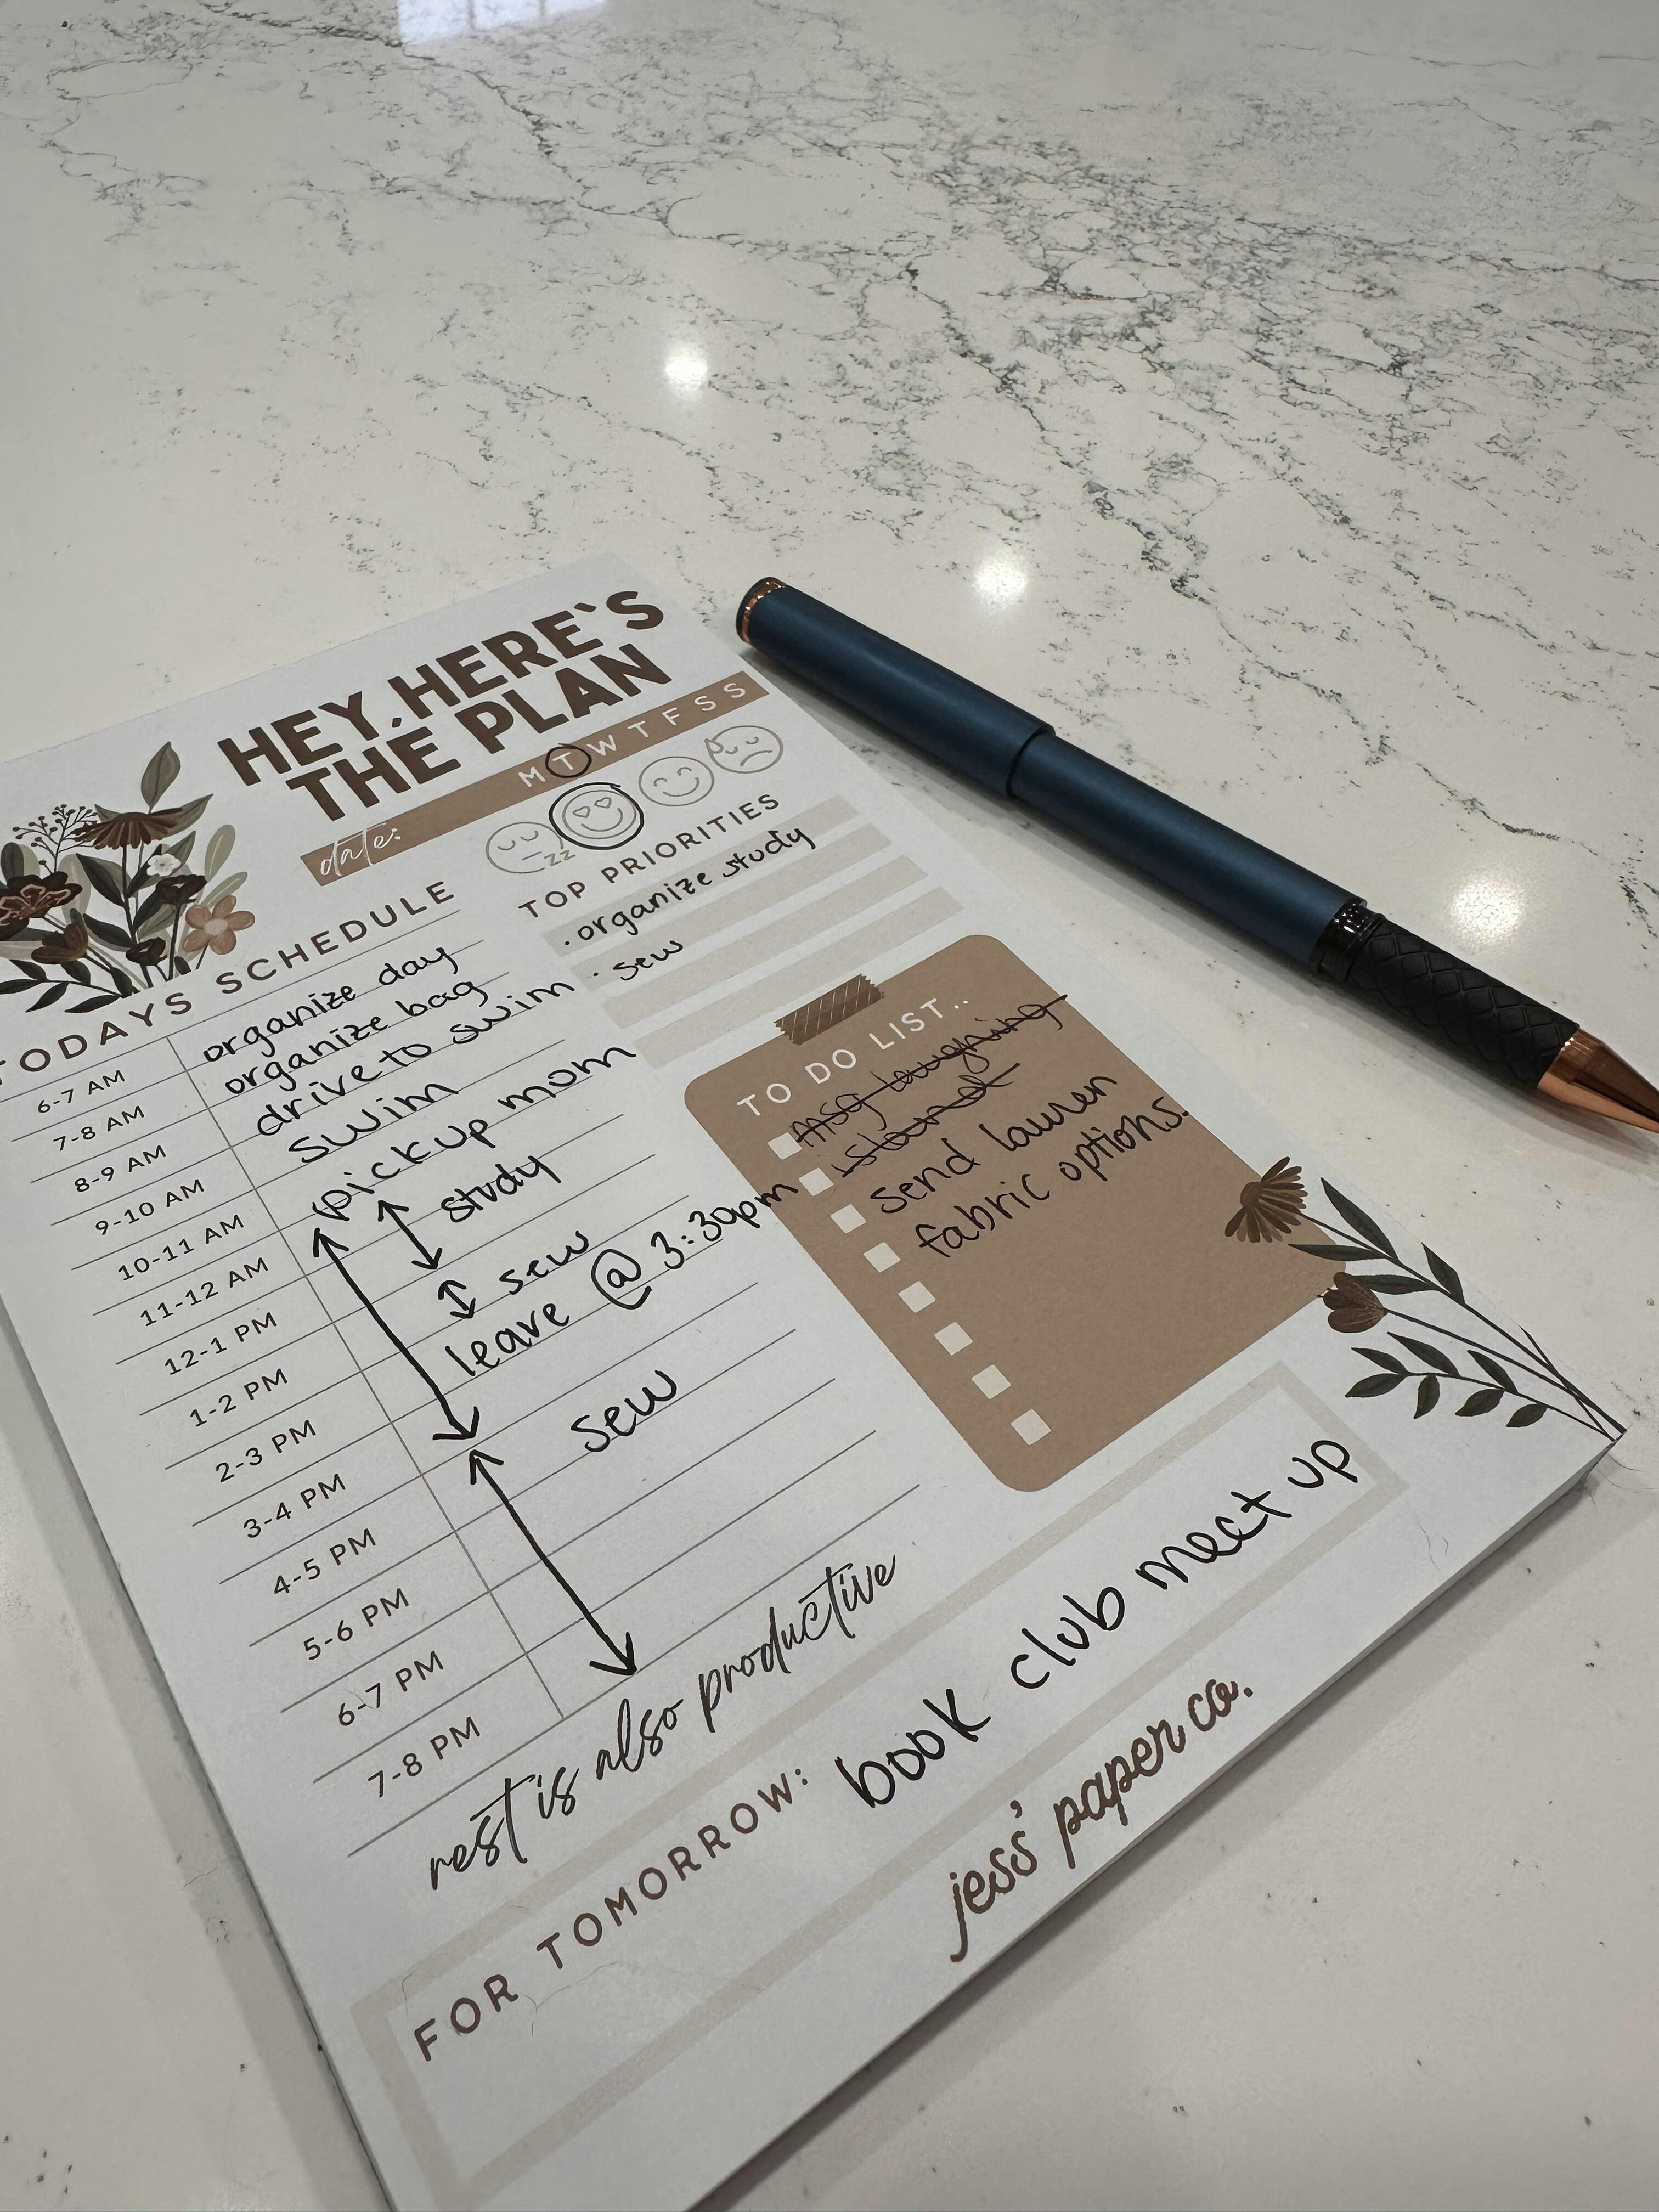 HEY, HERE'S
THE PLAN
date:
M T W T F S S
zz
TODAYS SCHEDULE
6-7 AM organize day
7-8 AM organize bag
8-9 AM drive to swim
9-10 AM swim
10-11 AM pickup mom
11-12 AM study
12-1 PM
1-2 PM sew
2-3 PM leave @ 3:30pm
3-4 PM
4-5 PM sew
5-6 PM
6-7 PM
7-8 PM
rest is also productive
TOP PRIORITIES
· organize study
· sew
TO DO LIST..
msg laughing
island
send lauren
fabric options.
FOR TOMORROW: book club meet up
jess' paper co.